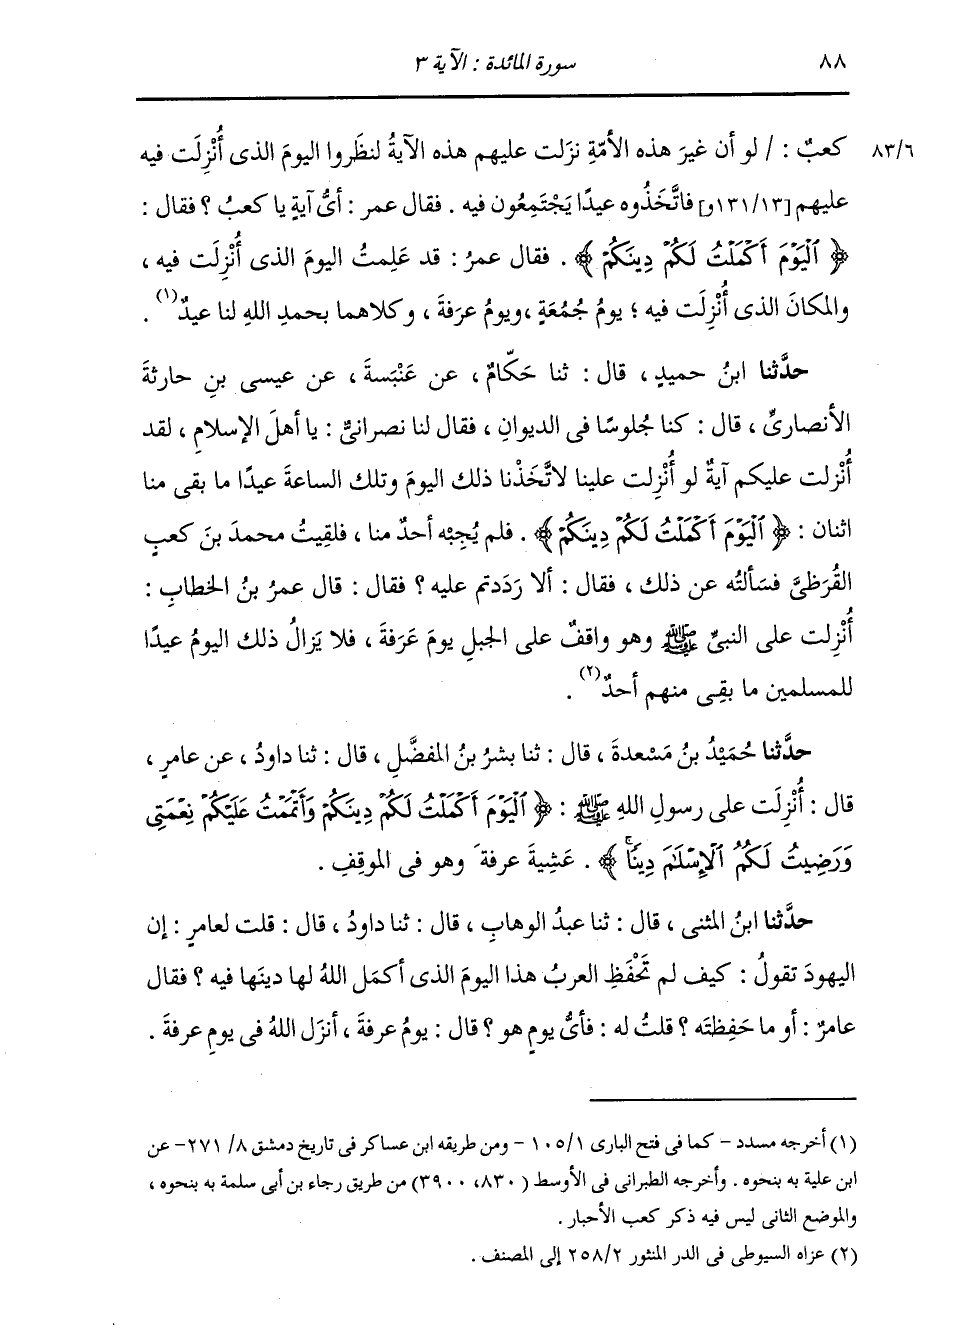 ٨٨ سورة المائدة : الآية ٣
٨٣/٦ كعبٌ : / لو أن غيرَ هذه الأمّةِ نزَلت عليهم هذه الآيةُ لنظَروا اليومَ الذى أُنْزِلَت فيه
عليهم [١٣١/١٣و] فاتَّخَذُوه عيدًا يَجْتَمِعُون فيه . فقال عمر : أىُّ آيةٍ يا كعبُ ؟ فقال :
﴿ ٱلْيَوْمَ أَكْمَلْتُ لَكُمْ دِينَكُمْ ﴾ . فقال عمرُ : قد عَلِمتُ اليومَ الذى أُنْزِلَت فيه ،
والمكانَ الذى أُنْزِلَت فيه ؛ يومُ جُمُعَةٍ ،ويومُ عرفةَ ، وكلاهما بحمدِ اللهِ لنا عيدٌ(١) .
حدَّثنا ابنُ حميدٍ ، قال : ثنا حَكّامٌ ، عن عَنْبَسةَ ، عن عيسى بنِ حارثةَ
الأنصارىِّ ، قال : كنا جُلوسًا فى الديوانِ ، فقال لنا نصرانىٌّ : يا أهلَ الإسلامِ ، لقد
أُنْزِلت عليكم آيةٌ لو أُنْزِلت علينا لاتَّخَذْنا ذلك اليومَ وتلك الساعةَ عيدًا ما بقى منا
اثنان : ﴿ ٱلْيَوْمَ أَكْمَلْتُ لَكُمْ دِينَكُمْ ﴾ . فلم يُجِبْه أحدٌ منا ، فلقِيتُ محمدَ بنَ كعبٍ
القُرَظىَّ فسَألتُه عن ذلك ، فقال : ألا رَدَدتم عليه ؟ فقال : قال عمرُ بنُ الخطابِ :
أُنْزِلت على النبىِّ ﷺ وهو واقفٌ على الجبلِ يومَ عَرَفةَ ، فلا يَزالُ ذلك اليومُ عيدًا
للمسلمين ما بقِى منهم أحدٌ(٢) .
حدَّثنا حُمَيْدُ بنُ مَسْعدةَ ، قال : ثنا بشرُ بنُ المفضَّلِ ، قال : ثنا داودُ ، عن عامرٍ ،
قال : أُنْزِلَت على رسولِ اللهِ ﷺ : ﴿ ٱلْيَوْمَ أَكْمَلْتُ لَكُمْ دِينَكُمْ وَأَتْمَمْتُ عَلَيْكُمْ نِعْمَتِى
وَرَضِيتُ لَكُمُ ٱلْإِسْلَٰمَ دِينًاۚ ﴾ . عَشِيةَ عرفةَ وهو فى الموقِفِ .
حدَّثنا ابنُ المثنى ، قال : ثنا عبدُ الوهابِ ، قال : ثنا داودُ ، قال : قلت لعامرٍ : إن
اليهودَ تقولُ : كيف لم تَحْفَظِ العربُ هذا اليومَ الذى أكمَل اللهُ لها دينَها فيه ؟ فقال
عامرٌ : أو ما حَفِظتَه ؟ قلتُ له : فأىُّ يومٍ هو ؟ قال : يومُ عرفةَ ، أنزَل اللهُ فى يومِ عرفةَ .
(١) أخرجه مسدد - كما فى فتح البارى ١٠٥/١ - ومن طريقه ابن عساكر فى تاريخ دمشق ٨/ ٢٧١- عن
ابن علية به بنحوه . وأخرجه الطبرانى فى الأوسط (٨٣٠، ٣٩٠٠) من طريق رجاء بن أبى سلمة به بنحوه ،
والموضع الثانى ليس فيه ذكر كعب الأحبار .
(٢) عزاه السيوطى فى الدر المنثور ٢٥٨/٢ إلى المصنف .